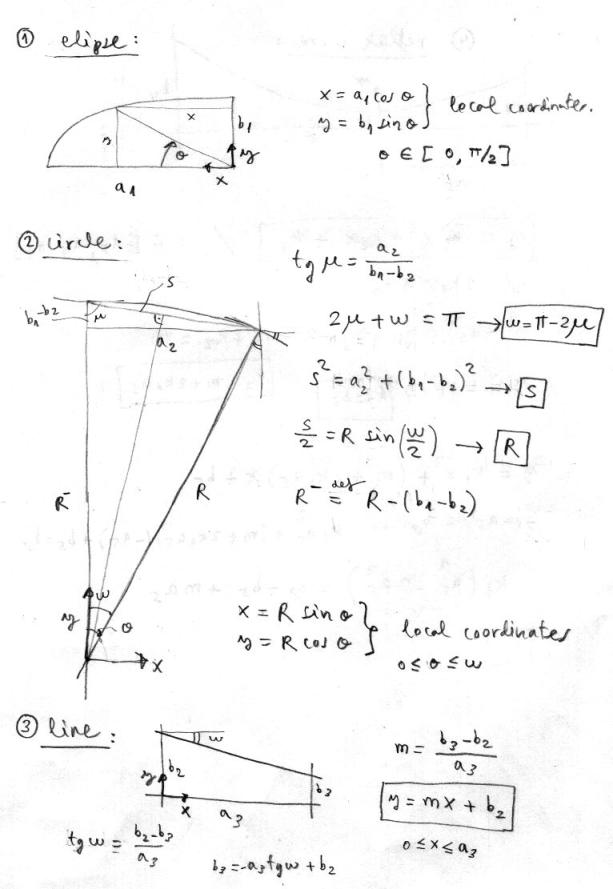 ① elipse:
x = a1 cos θ
y = b1 sin θ
local coordinates.
θ ∈ [0, π/2]
x
b1
y
θ
y
x
a1
② circle:
tg μ = a2 / (b1-b2)
b1-b2
μ
S
a2
2μ + w = π → w = π-2μ
s² = a2² + (b1-b2)² → S
s/2 = R sin(w/2) → R
R⁻ def= R - (b1-b2)
R⁻
R
w
y
θ
x
x = R sin θ
y = R cos θ
local coordinates
0 ≤ θ ≤ w
③ line:
w
y
b2
b3
x
a3
m = (b3-b2) / a3
y = mx + b2
0 ≤ x ≤ a3
tg w = (b2-b3) / a3
b3 = -a3 tg w + b2